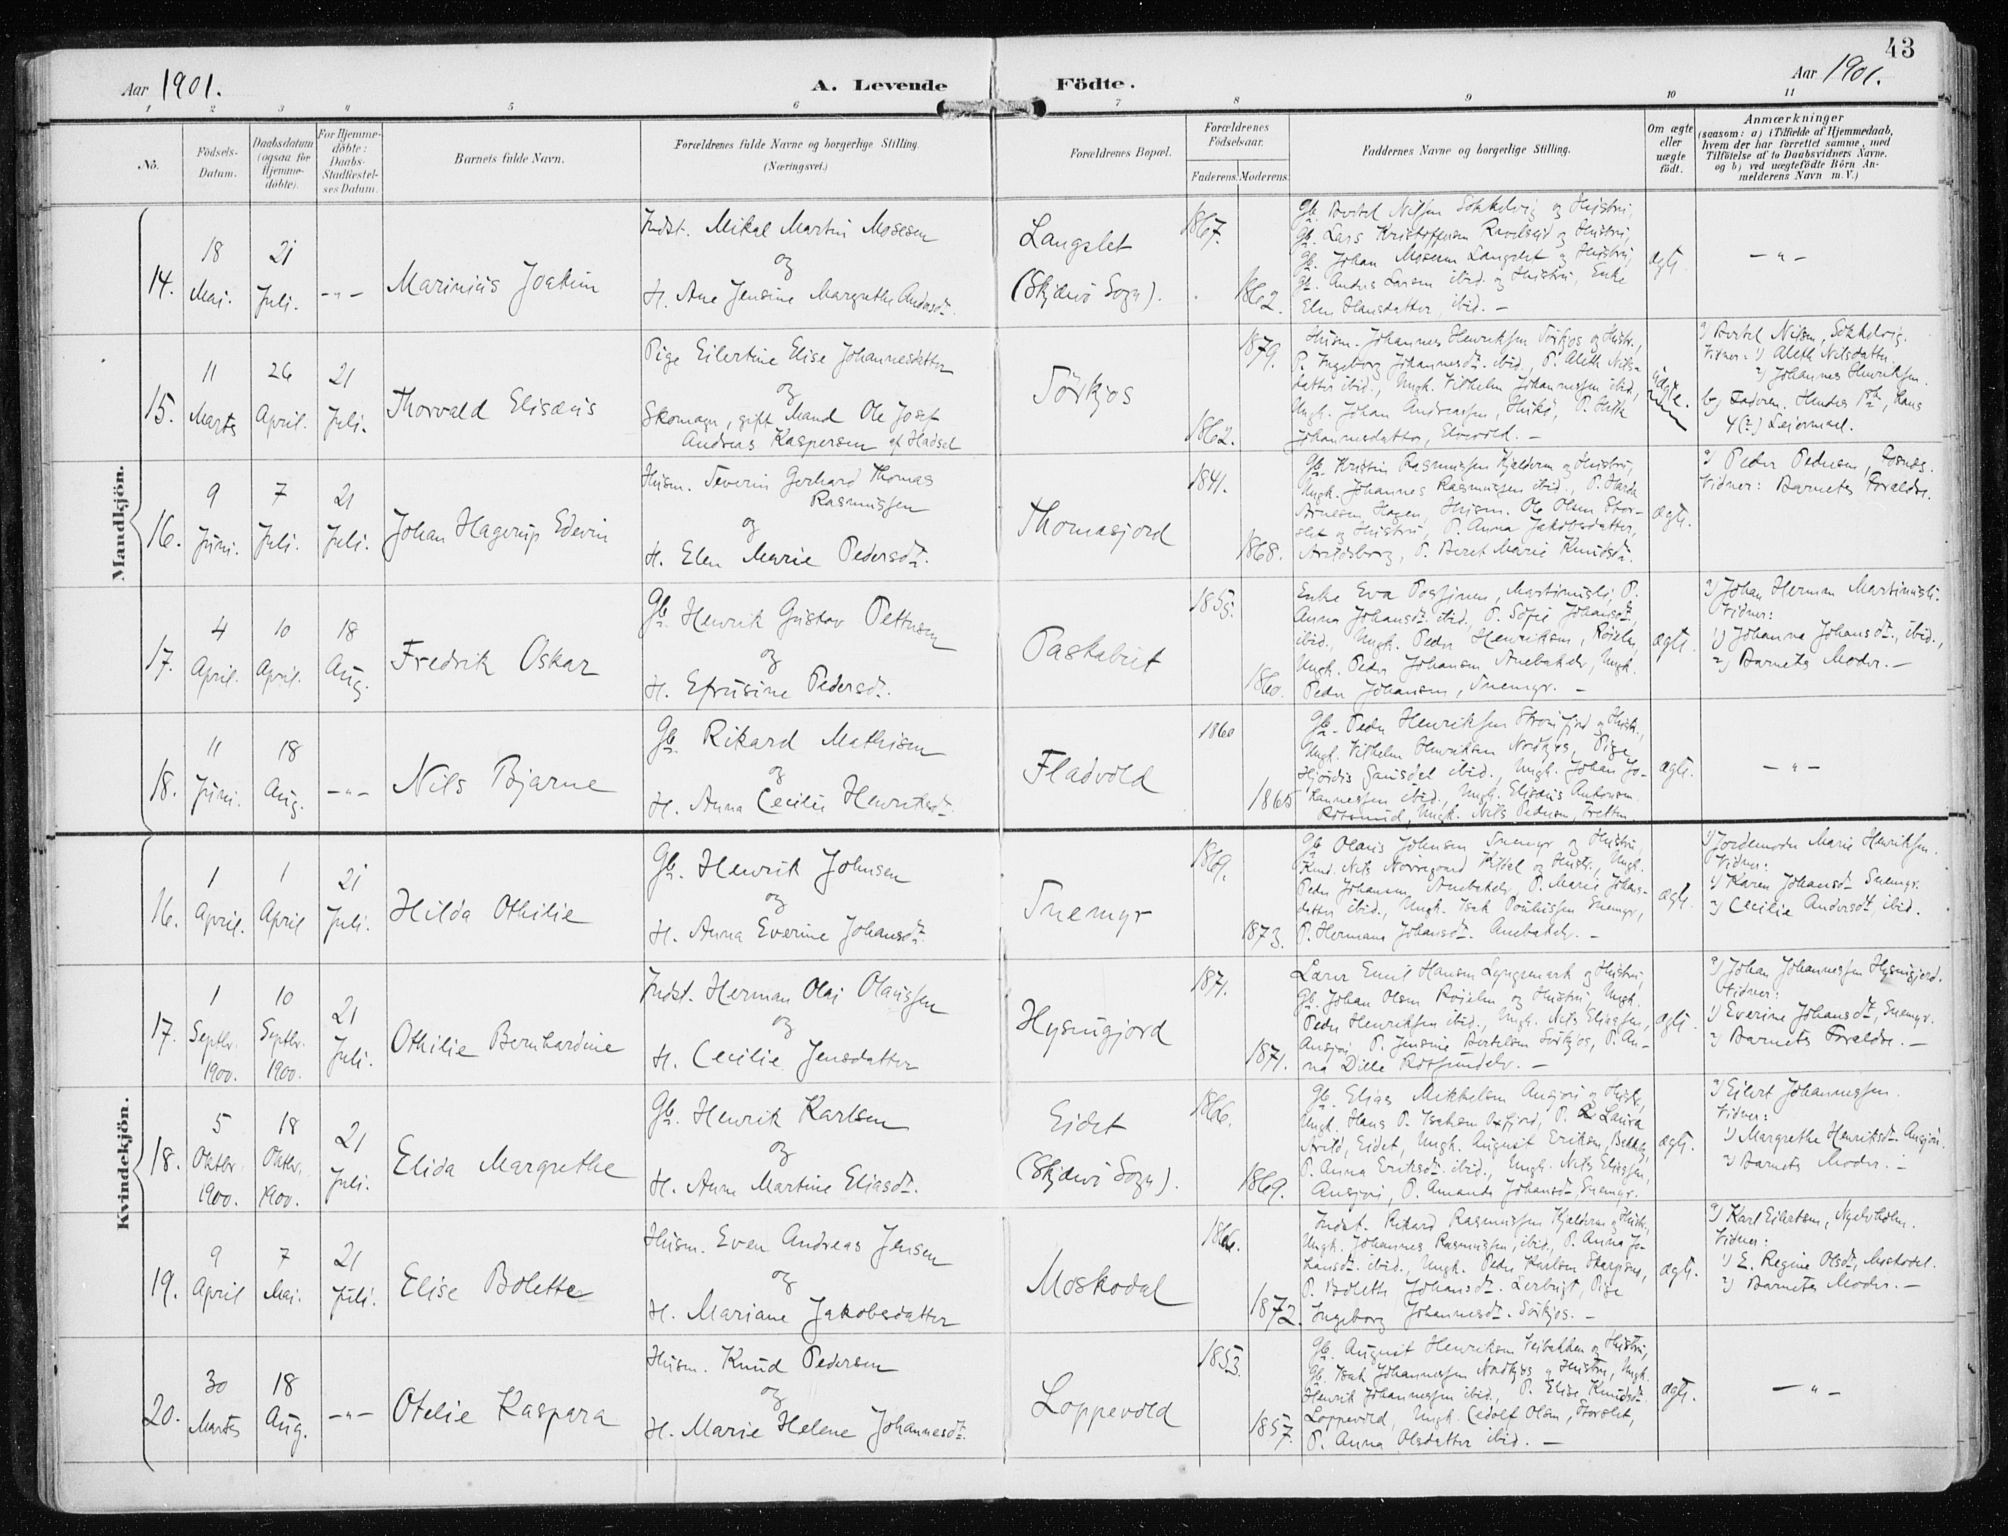 43
Aar 1901.
A. Levende Födte.
Aar 1901.
1 2 3 4 5 6 7 8 9 10 11
No.
Födsels-Datum.
Daabsdatum (ogsaa for Hjemmedöbte).
For Hjemmedöbte: Daabs-Stadfæstelses Datum.
Barnets fulde Navn.
Forældrenes fulde Navne og borgerlige Stilling. (Næringsvei.)
Forældrenes Bopæl.
Forældrenes Födselsaar.
Faderens. Moderens.
Faddernes Navne og borgerlige Stilling.
Om ægte eller uægte födt.
Anmærkninger
(saasom: a) i Tilfælde af Hjemmedaab,
hvem der har forrettet samme, med
Tilföielse af to Daabsvidners Navne.
og b) ved uægtefödte Börn An-
melderens Navn m. V.)
Mandkjön.
14.
18 Mai.
21 Juli.
-"-
Marinius Joakim
Indst. Mikal Martin Mosesen
og
H. Ane Jensine Margrethe Andersdr.
Langslet
(Skjærvö Sogn).
1867.
1862.
Gb. Bertel Nilsen Sökkelvig og Hustru,
Gb. Lars Kristoffersen og Hustru,
Gb. Johan Mosesen Langslet og Hustru,
Gb. Anders Larsen ibid. og Hustru, Enke
Elen Hansdatter, ibid. -
ægte.
-"-
15.
11 Marts
26 April.
21 Juli.
Thorvald Elisæus
Pige Eilertine Elise Johannesdatter
og
Skomager, gift Mand Ole Josef
Andreas Kaspersen af Hadsel
Sörkjos
1879.
1862.
Husm. Johannes Henriksen Sörkjos og Hustr.,
P. Ingeborg Johannesdr. ibid., P. Aleth Nils-
datter ibid., Ungk. Vilhelm Johannessen ibid.,
Ungk. Johan Andreassen, P.
Johannesdatter, Elvevold. -
uægte.
a) Bertel Nilsen, Sökkelvig.
Vidner: 1) Aleth Nilsdatter.
2) Johannes Henriksen.
b) Faderen. Hendes 1ste, hans
4(?) Leiermaal.
16.
9 Juni.
7 Juli.
21 Juli.
Johan Hagerup Edevin
Husm. Severin Gerhard Thomas
Rasmussen
og
H. Elen Marie Pedersdr.
Thomasjord
1841.
1868.
Gb. Kristin Rasmussen Kjelderen og Hustru,
Ungk. Johannes Rasmussen ibid., P. Hanna
Arnesen, Hagen, Husm. Ole Olsen Stor-
slet og Hustru, P. Anna Jakobsdatter,
P. Beret Marie Knudsdr.
ægte.
a) Peder Pedersen,
Vidner: Barnets Forældre.
17.
4 April.
10 April.
18 Aug.
Fredrik Oskar
Gb. Henrik Gustav Pettersen
og
H. Efrusine Pedersdr.
Paskabut
1855.
1860.
Enke Eva P.
Anna Johansdr. ibid., P. Sofie Johansdr.,
ibid., Ungk. Peder Henriksen, Röieln,
Ungk. Peder Johansen Anebakelv, Ungk.
Peder Johansen, Snemyr. -
ægte.
a) Johan Herman
Vidner:
1) Johanna Johansdr., ibid.,
2) Barnets Moder. -
18.
11 Juni.
18 Aug.
-"-
Nils Bjarne
Gb. Rikard Mathisen
og
H. Anna Cecilie Henriksdr.
Fladvold
1860
1865
Gb. Peder Henriksen og Hustr.,
Ungk. Vilhelm Henriksen Nordkjos, Pige
Hjördis ibid., Ungk. Johan Jo-
hannessen ibid., Ungk. Elisæus Antonsen
Rotsund, Ungk. Nils Pedersen,
ægte.
-"-
Kvindekjön.
16.
1 April.
1 April
21 Juli.
Hilda Othilie
Gb. Henrik Johnsen
og
H. Anna Everine Johansdr.
Snemyr
1869.
1873.
Gb. Olaus Johnsen Snemyr og Hustru,
Nils og Hustr., Ungk.
Peder Johansen, Anebakelv, P. Marie Johans-
datter ibid., Ungk. Isak Snemyr,
P. Hermana Johansdr. Anebakelv. -
ægte.
a) Jordemoder Marie Henriksen.
Vidner:
1) Karen Johansdr. Snemyr.
2) Cecilie Andersdr., ibid.
17.
1 Septbr. 1900.
10 Septbr. 1900.
21 Juli.
Othilie Bernhardine
Indst. Herman Olai Olaussen
og
H. Cecilie Jensdatter
Hysingjord
1871.
1871.
Lærer Emil Hansen Lyngmark og Hustru,
Gb. Johan Olsen Röieln og Hustru, Ungk.
Peder Henriksen ibid., Ungk. Nils Eliassen,
P. Jensine Bertelsen Sörkjos, P. An-
na Rotsundelv. -
ægte.
a) Johan Johannessen Hysingjord.
Vidner:
1) Everine Johansdr., Snemyr.
2) Barnets Forældre. -
18.
5 Oktbr. 1900.
18 Oktbr. 1900.
21 Juli.
Elida Margrethe
Gb. Henrik Karlsen
og
H. Anne Martine Eliasdr.
Eidet
(Skjærvö Sogn).
1866.
1869.
Gb. Elias Mikkelsen og Hustr.,
Ungk. Hans P. Isaksen Oxfjord, P. Laura
Arild, Eidet, Ungk. August Eriksen,
P. Anna Eriksdr. ibid., Ungk. Nils Eliassen,
P. Amanda Johansdr. Snemyr.
ægte.
a) Eilert Johannessen.
Vidner:
1) Margrethe Henriksdr.
2) Barnets Moder. -
19.
9 April
7 Mai.
21 Juli.
Elise Bolette
Husm. Even Andreas Jensen
og
H. Mariane Jakobsdatter
Moskodal
1866.
1872.
Indst. Rikard Rasmussen Kjelderen og Hustr.,
Ungk. Johannes Rasmussen, ibid., P. Anna Jo-
hansdr. ibid., Ungk. Peder Karlsen
P. Bolette Johansdr. Lerbugt, Pige
Ingeborg Johannesdr. Sörkjos. -
ægte.
a) Karl Eilertsen, Nyelvholm.
Vidner:
1) E. Regine Olsdr., Moskodal.
2) Barnets Moder. -
20.
30 Marts
18 Aug.
-"-
Otelie Kaspara
Husm. Knud Pedersen
og
H. Marie Helene Johannesdr.
Loppevold
1853.
1857.
Gb. August Henriksen og Hustru,
Gb. Isak Johannessen Nordkjos og Hustru, Ungk.
Henrik Johannessen ibid., P. Elise Knudsdr.
Loppevold, Ungk. Olsen, Storslet,
P. Anna Olsdatter ibid. -
ægte.
-"-